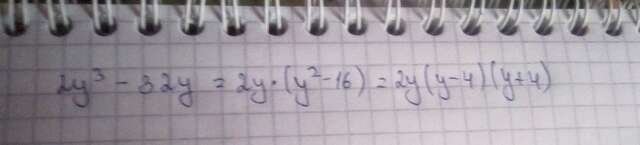 2y³ - 32y = 2y·(y²-16) = 2y(y-4)(y+4)